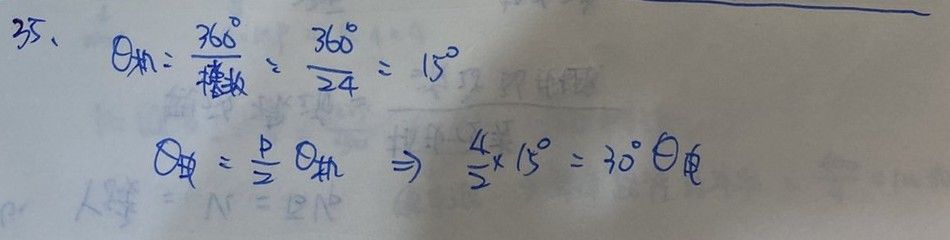 35、 θ机 = 360°/槽数 = 360°/24 = 15°
θ电 = P/2 θ机 ⇒ 4/2 × 15° = 30° θ电